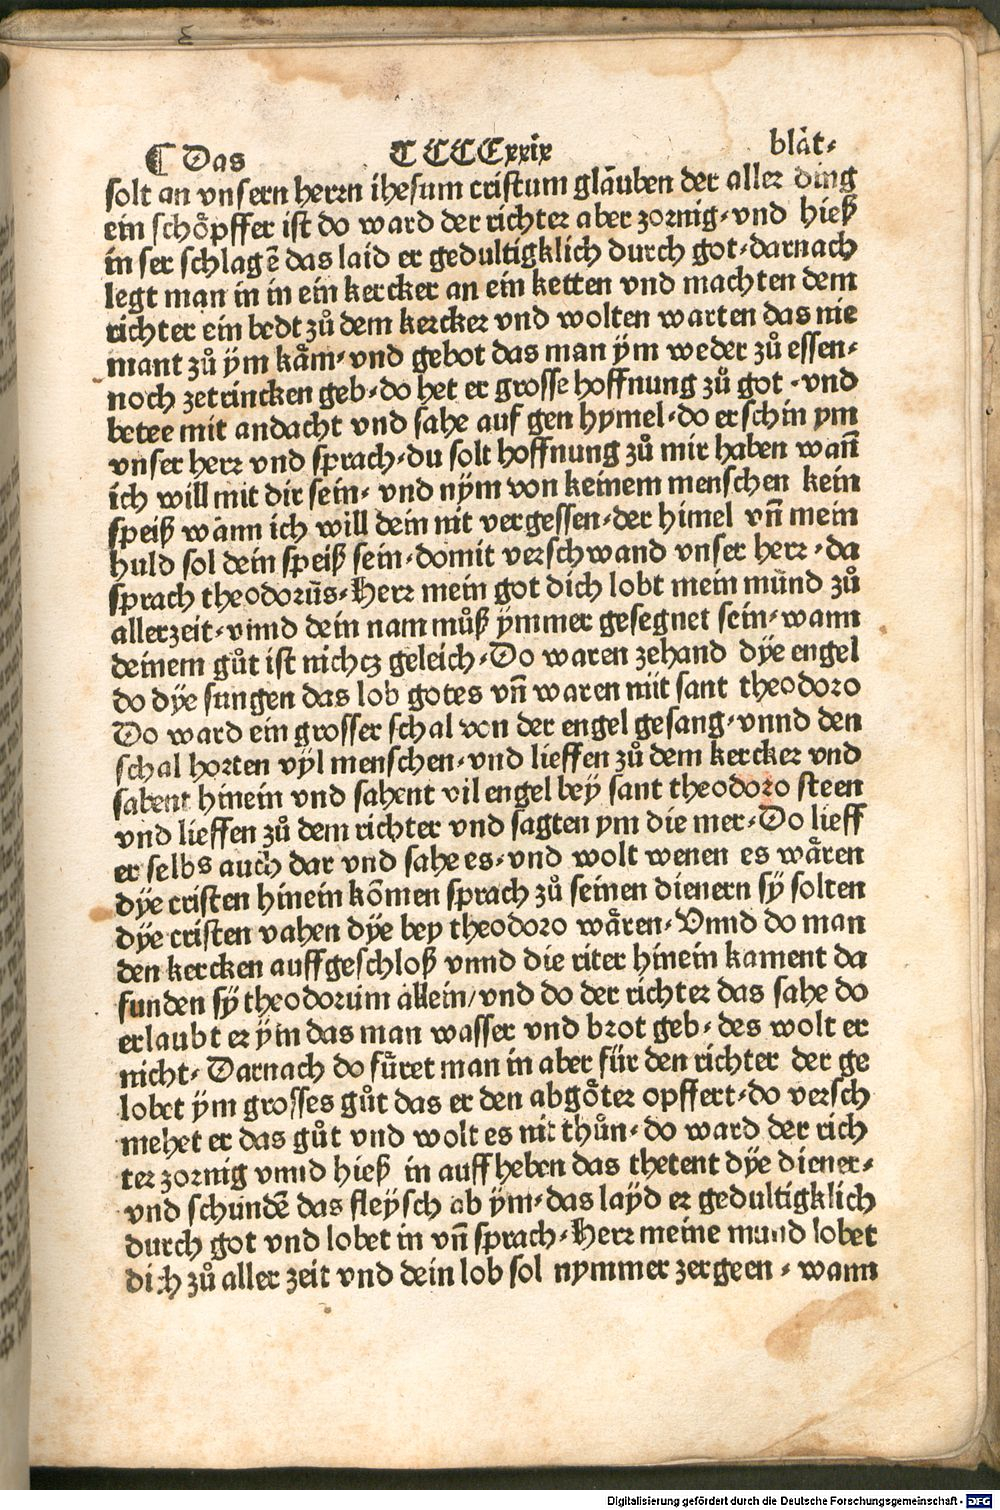 ⸿ Das CCCCxxix blåt⸗
solt an vnsern herrn ihesum cristum glauben der aller ding
ein schöpffer ist do ward der richter aber zornig⸗vnd hieß
in ser schlagē das laid er gedultigklich durch got⸗darnach
legt man in in ein kercker an ein ketten vnd machten dem
richter ein bedt zů dem kercker vnd wolten warten das nie
mant zů ÿm kåm⸗vnd gebot das man ÿm weder zů essen⸗
noch zetrincken geb⸗do het er grosse hoffnung zů got ⸗vnd
betee mit andacht vnd sahe auf gen hymel⸗do erschin ym
vnser herr vnd sprach⸗du solt hoffnung zů mir haben wañ
ich will mit dir sein⸗ vnd nÿm von keinem menschen kein
speiß wann ich will dein nit vergessen⸗der himel vñ mein
huld sol dein speiß sein⸗domit verschwand vnser herr⸗da
sprach theodorus⸗Herr mein got dich lobt mein mund zů
allerzeit⸗vnnd dein nam můß ÿmmer gesegnet sein⸗wann
deinem gůt ist nichcz geleich⸗Do waren zehand dÿe engel
do dÿe sungen das lob gotes vñ waren mit sant theodoro
Do ward ein grosser schal von der engel gesang⸗vnnd den
schal horten vÿl menschen⸗vnd lieffen zů dem kercker vnd
sahent hinein vnd sahent vil engel beÿ sant theodoro steen
vnd lieffen zů dem richter vnd sagten ym die mer⸗Do lieff
er selbs auch dar vnd sahe es⸗vnd wolt wenen es wåren
dÿe cristen hinein kōmen sprach zů seinen dienern sÿ solten
dÿe cristen vahen dÿe bey theodoro wåren⸗Vnnd do man
den kercken auffgeschloß vnnd die riter hinein kament da
funden sÿ theodorum allein/vnd do der richter das sahe do
erlaubt er ÿm das man wasser vnd brot geb⸗ des wolt er
nicht⸗ Darnach do fůret man in aber für den richter der ge
lobet ÿm grosses gůt das er den abgöter opffert⸗do versch
mehet er das gůt vnd wolt es nit thůn⸗ do ward der rich
ter zornig vnnd hieß in auffheben das thetent dÿe diener⸗
vnd schundē das fleÿsch ab ÿm⸗das laÿd er gedultigklich
durch got vnd lobet in vñ sprach⸗Herr meine mund lobet
dich zů aller zeit vnd dein lob sol nymmer zergeen ⸗ wann
Digitalisierung gefördert durch die Deutsche Forschungsgemeinschaft - DFG